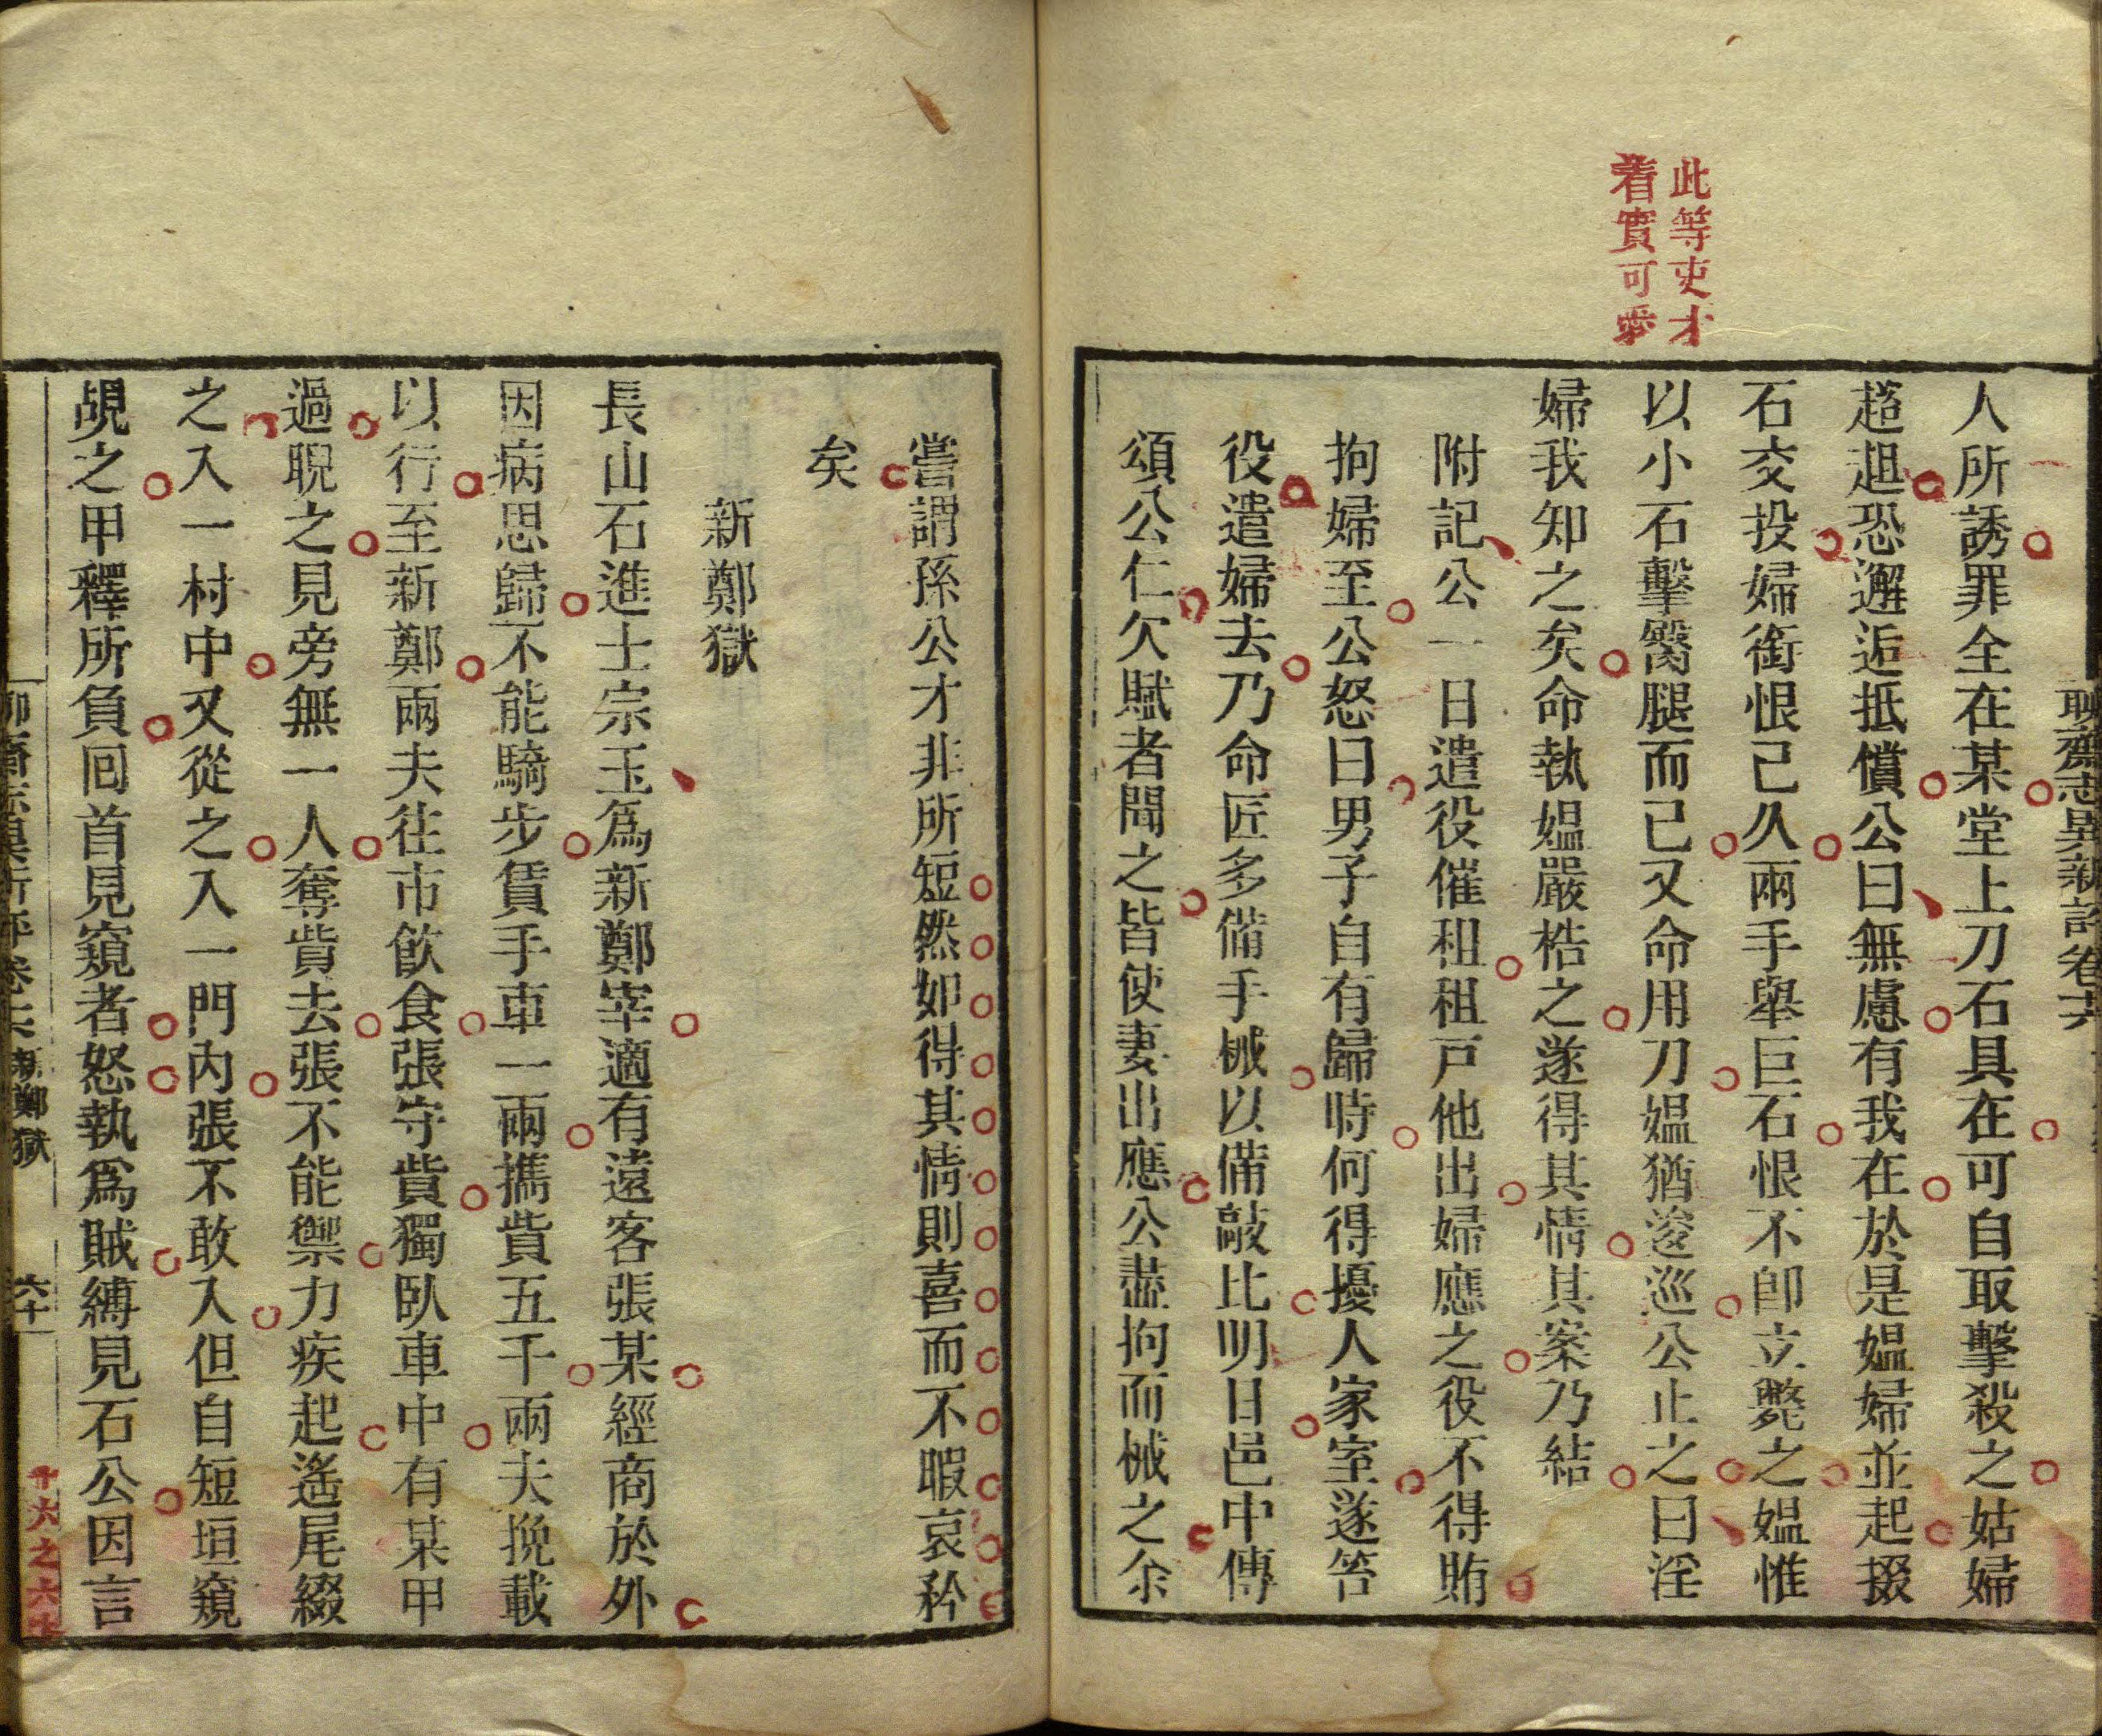 聊齋志異新評卷十六
此等吏才
着實可愛
人所誘罪全在某堂上刀石具在可自取擊殺之姑婦
趑趄恐邂逅抵償公曰無慮有我在於是媼婦並起掇
石交投婦銜恨已久兩手舉巨石恨不卽立斃之媼惟
以小石擊臀腿而已又命用刀媼猶逡巡公止之曰淫
婦我知之矣命執媼嚴梏之遂得其情其案乃結
附記公一日遣役催租租戶他出婦應之役不得賄
拘婦至公怒曰男子自有歸時何得擾人家室遂笞
役遣婦去乃命匠多備手械以備敲比明日邑中傳
頌公仁欠賦者聞之皆使妻出應公盡拘而械之余
嘗謂孫公才非所短然如得其情則喜而不暇哀矜
矣
新鄭獄
長山石進士宗玉為新鄭宰適有遠客張某經商於外
因病思歸不能騎步賃手車一兩攜貲五千兩夫挽載
以行至新鄭兩夫往市飲食張守貲獨臥車中有某甲
過睨之見旁無一人奪貲去張不能禦力疾起遙尾綴
之入一村中又從之入一門內張不敢入但自短垣窺
覘之甲釋所負回首見窺者怒執為賊縛見石公因言
聊齋志異新評卷十六 新鄭獄 六十
十六之六十